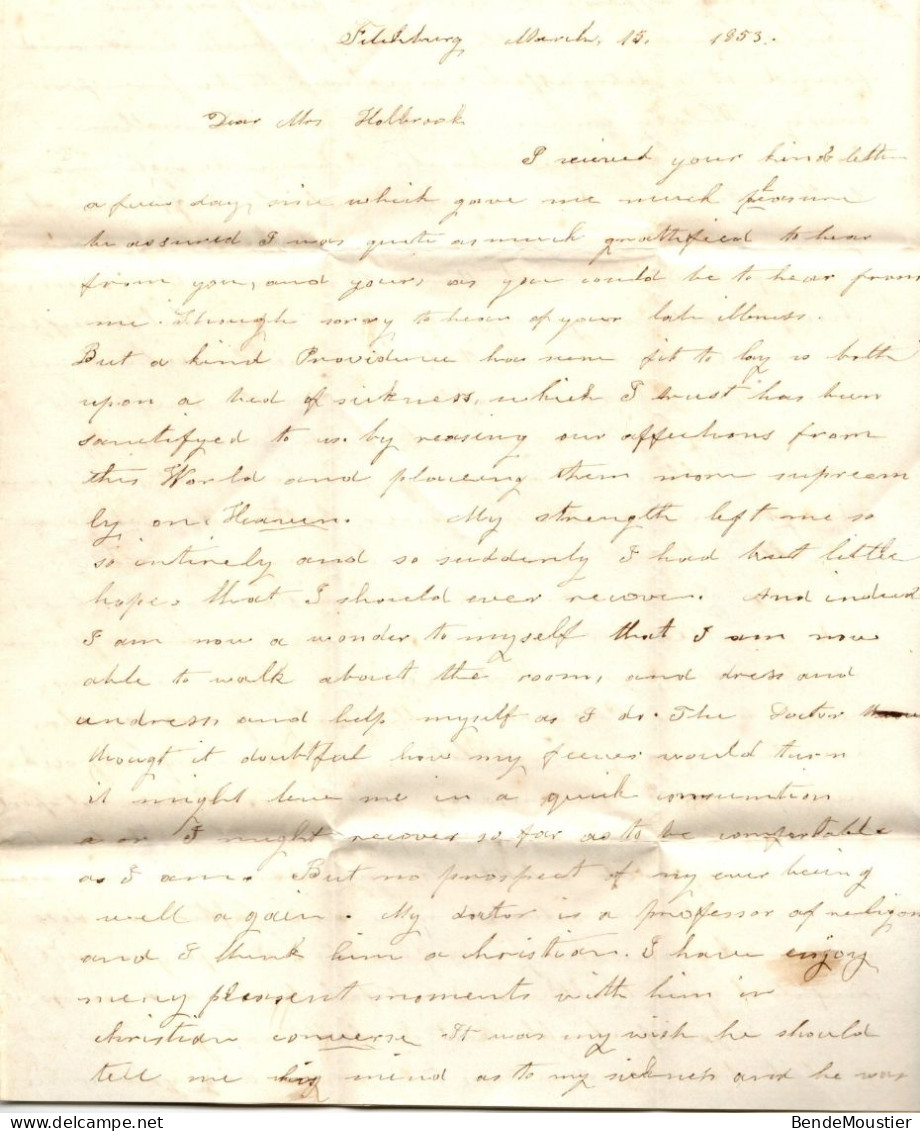 Fitchburg March, 15. 1853.
Dear Mrs Holbrook
I recieved your kind letter
a few day, since which gave me much pleasure
be assured I was quite as much grattified to hear
from you, and yours as you could be to hear from
me. Though sorry to hear of your late illness.
But a kind Providence has seen fit to lay us both
upon a bed of sickness, which I trust has been
sanctifyed to us. by reasing our affections from
this World and placeing them more supreem
ly on, Heaven. My strength left me so
so intirely and so suddenly I had but little
hope, that I should ever recover. And indeed
I am now a wonder to myself that I am now
able to walk about the room, and dress and
undress and help myself as I do. The Doctor
thougt it doubtful how my feever would turn
it might leve me in a quick consumtion
a or I might recover so far as to be comfortable
as I am. But no prospect of my ever being
well a gain. My doctor is a professor of religon
and I think him a christian. I have enjoy
meny plesent moments with him in
christian converse. It was my wish he should
tell me his mind as to my sickness and he was
BendeMoustier